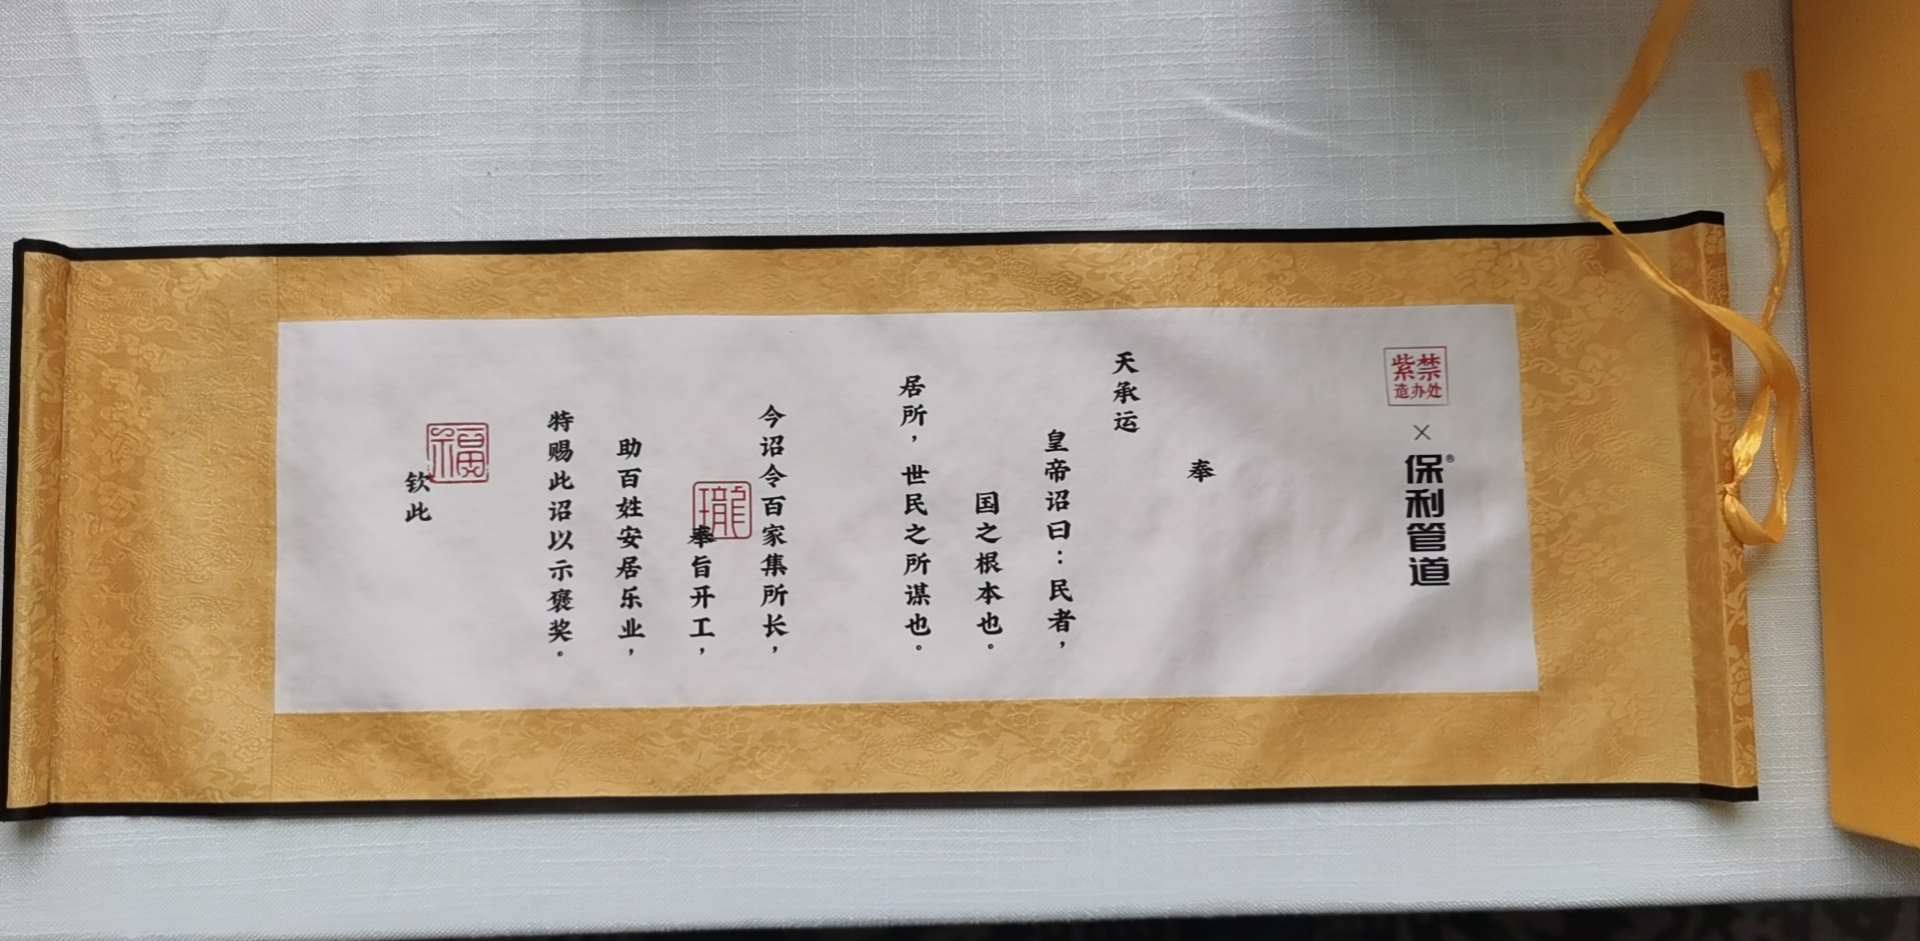 紫禁
造办处
×
保利管道®
奉
天承运
皇帝诏曰：民者，
国之根本也。
居所，世民之所谋也。
今诏令百家集所长，
瓏
奉旨开工，
助百姓安居乐业，
特赐此诏以示褒奖。
福
钦此